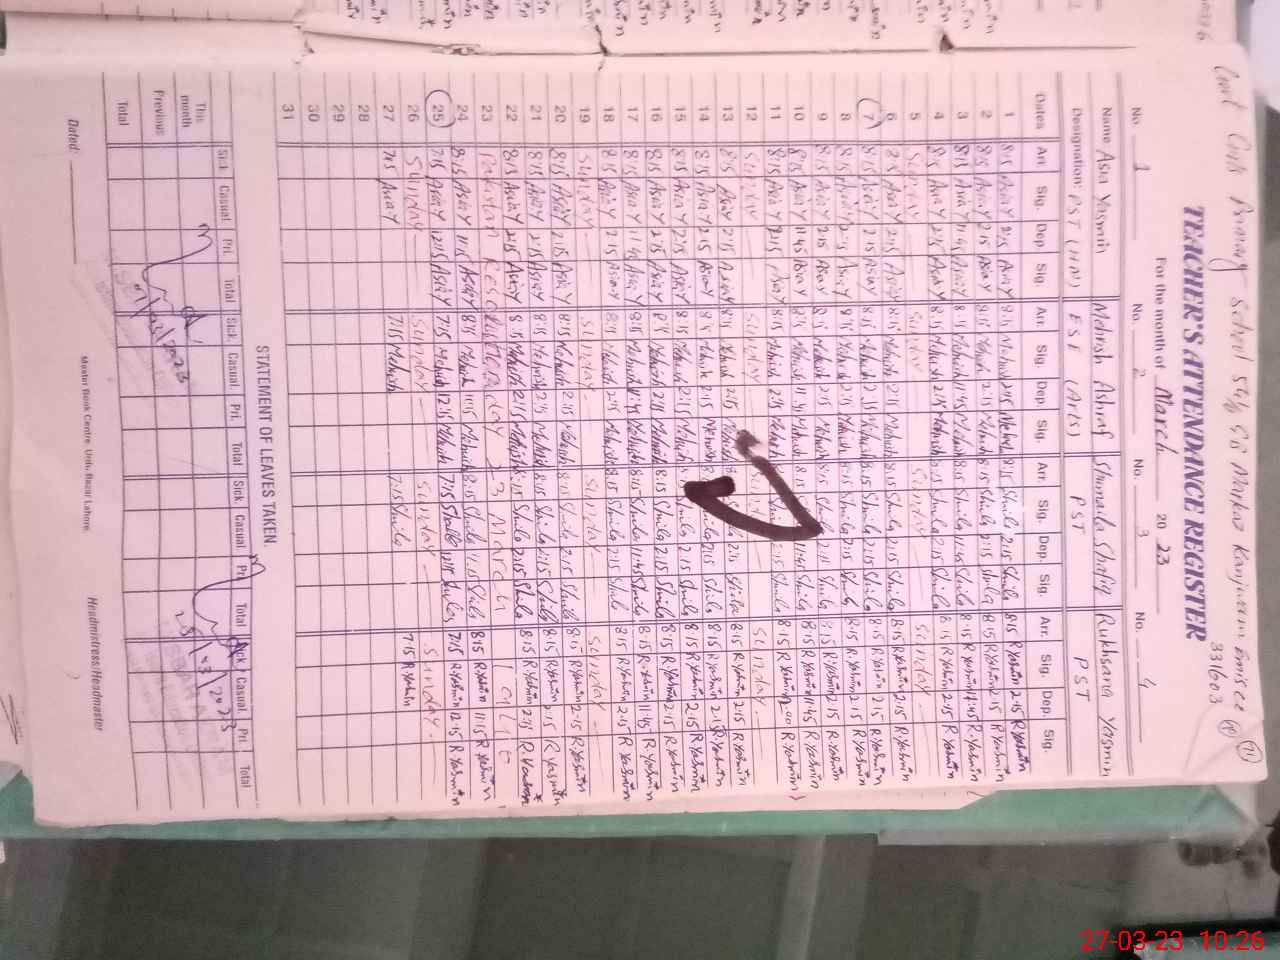 Govt Girls Primary School 54/5 GB Markaz Kanjwani
331603
TEACHER'S ATTENDANCE REGISTER
For the month of March 2023
No. 1 No. 2 No. 3 No. 4
Name Asia Yasmin Mehwish Ashraf Shumaila Shafiq Rukhsana Yasmin
Designation: PST (HM) ESE (Arts) PST PST
Dates Arr. Sig. Dep. Sig. Arr. Sig. Dep. Sig. Arr. Sig. Dep. Sig. Arr. Sig. Dep. Sig.
1 8:15 Asia Y 2:15 Asia Y 8:15 Mehwish 2:15 Mehwish 8:15 Shmila 2:15 Shmila 8:15 R.Yasmin 2:15 R.Yasmin
2 8:15 Asia Y 2:15 Asia Y 8:15 Mehwish 2:15 Mehwish 8:15 Shmila 2:15 Shmila 8:15 R.Yasmin 2:15 R.Yasmin
3 8:15 Asia Y 11:45 Asia Y 8:15 Mehwish 11:45 Mehwish 8:15 Shmila 11:45 Shmila 8:15 R.Yasmin 11:45 R.Yasmin
4 8:15 Asia Y 2:15 Asia Y 8:15 Mehwish 2:15 Mehwish 8:15 Shmila 2:15 Shmila 8:15 R.Yasmin 2:15 R.Yasmin
5 Sunday Sunday Sunday Sunday
6 8:15 Asia Y 2:15 Asia Y 8:15 Mehwish 2:15 Mehwish 8:15 Shmila 2:15 Shmila 8:15 R.Yasmin 2:15 R.Yasmin
7 8:15 Asia Y 2:15 Asia Y 8:15 Mehwish 2:15 Mehwish 8:15 Shmila 2:15 Shmila 8:15 R.Yasmin 2:15 R.Yasmin
8 8:15 Asia Y 2:15 Asia Y 8:15 Mehwish 2:15 Mehwish 8:15 Shmila 2:15 Shmila 8:15 R.Yasmin 2:15 R.Yasmin
9 8:15 Asia Y 2:15 Asia Y 8:15 Mehwish 2:15 Mehwish 8:15 Shmila 2:15 Shmila 8:15 R.Yasmin 2:15 R.Yasmin
10 8:15 Asia Y 11:45 Asia Y 8:15 Mehwish 11:45 Mehwish 8:15 11:45 Shmila 8:15 R.Yasmin 11:45 R.Yasmin
11 8:15 Asia Y 2:15 Asia Y 8:15 Mehwish 2:15 Mehwish 2:15 Shmila 8:15 R.Yasmin 2:00 R.Yasmin
12 Sunday Sunday Sunday Sunday
13 8:15 Asia Y 2:15 Asia Y 8:15 Mehwish 2:15 Mehwish 2:15 Shmila 8:15 R.Yasmin 2:15 R.Yasmin
14 8:15 Asia Y 2:15 Asia Y 8:15 Mehwish 2:15 Mehwish Shmila 2:15 Shmila 8:15 R.Yasmin 2:15 R.Yasmin
15 8:15 Asia Y 2:15 Asia Y 8:15 Mehwish 2:15 Mehwish Shmila 2:15 Shmila 8:15 R.Yasmin 2:15 R.Yasmin
16 8:15 Asia Y 2:15 Asia Y 8:15 Mehwish 2:15 Mehwish 8:15 Shmila 2:15 Shmila 8:15 R.Yasmin 2:15 R.Yasmin
17 8:15 Asia Y 11:45 Asia Y 8:15 Mehwish 11:45 Mehwish 8:15 Shmila 11:45 Shmila 8:15 R.Yasmin 11:45 R.Yasmin
18 8:15 Asia Y 2:15 Asia Y 8:15 Mehwish 2:15 Mehwish 8:15 Shmila 2:15 Shmila 8:15 R.Yasmin 2:15 R.Yasmin
19 Sunday Sunday Sunday Sunday
20 8:15 Asia Y 2:15 Asia Y 8:15 Mehwish 2:15 Mehwish 8:15 Shmila 2:15 Shmila 8:15 R.Yasmin 2:15 R.Yasmin
21 8:15 Asia Y 2:15 Asia Y 8:15 Mehwish 2:15 Mehwish 8:15 Shmila 2:15 Shmila 8:15 R.Yasmin 2:15 R.Yasmin
22 8:15 Asia Y 2:15 Asia Y 8:15 Mehwish 2:15 Mehwish 8:15 Shmila 2:15 Shmila 8:15 R.Yasmin
23 Pakistan Resolution Day 23 March
24 8:15 Asia Y 11:15 Asia Y 8:15 Mehwish 11:15 Mehwish 8:15 Shmila 11:15 Shmila 8:15 R.Yasmin 11:15 R.Yasmin
25 7:15 Asia Y 12:15 Asia Y 7:15 Mehwish 12:15 Mehwish 7:15 Shmila 12:15 Shmila 7:15 R.Yasmin 12:15 R.Yasmin
26 Sunday Sunday Sunday Sunday
27 7:15 Asia Y 7:15 Mehwish 7:15 Shmila 7:15 R.Yasmin
28
29
30
31
STATEMENT OF LEAVES TAKEN.
Sick Casual Pri. Total Sick Casual Pri. Total Sick Casual Pri. Total Sick Casual Pri. Total
This month
Previous
Total
Dated:
Headmistress/Headmaster
Master Book Centre Urdu Bazar Lahore.
27-03-23 10:26